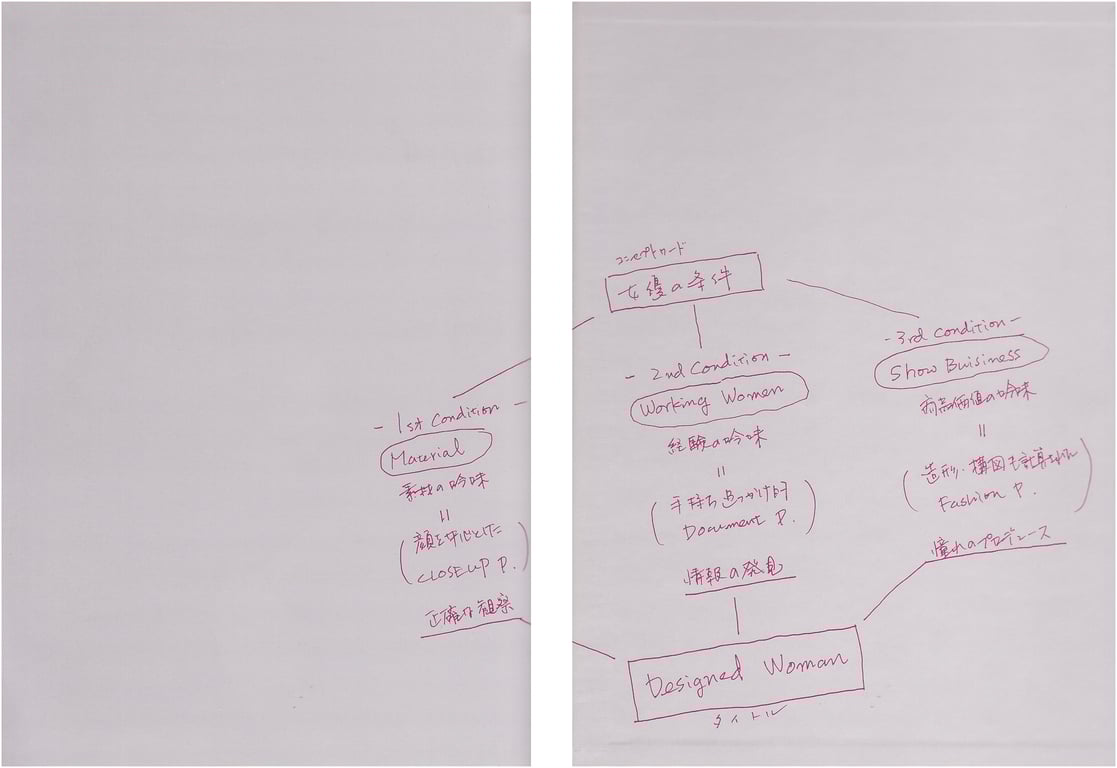 コンセプトワード
女優の条件
- 1st Condition -
Material
素材の吟味
=
(顔を中心とした
CLOSEUP P.)
正確な観察
- 2nd Condition -
Working Women
経験の吟味
=
(手持ち追っかけ的
Document P.)
情報の発見
- 3rd Condition -
Show Buisiness
商品価値の吟味
=
(造形、構図も計算された
Fashion P.)
憧れのプロデュース
Designed Woman
タイトル